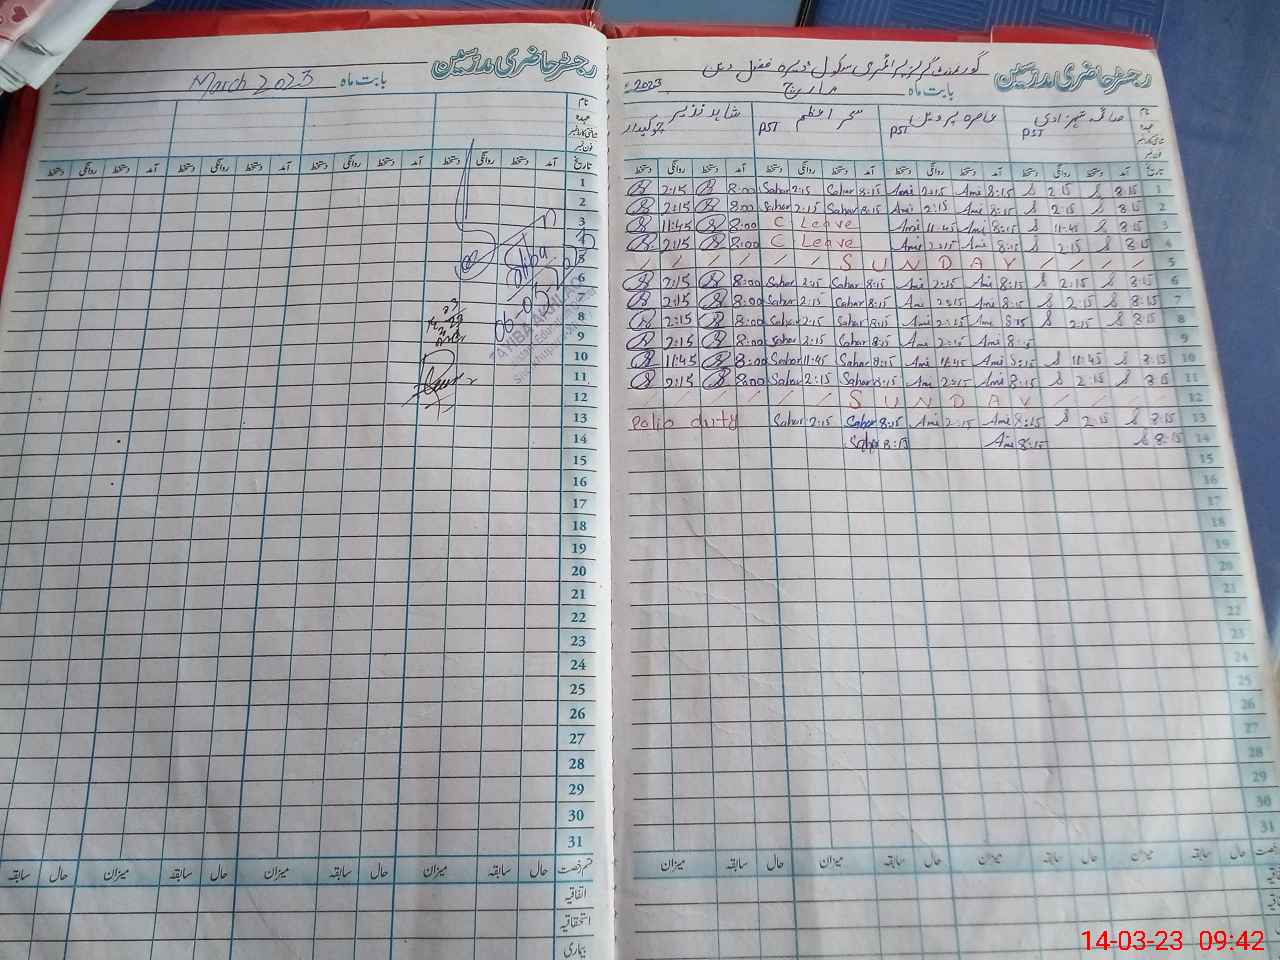 رجسٹر حاضری مدرسین
گورنمنٹ گرلز پرائمری سکول ڈیرہ فضل دین
بابت ماہ مارچ 2023ء
نام
عہدہ
شناختی کارڈ نمبر
فون نمبر
صائمہ شہزادی PST
عاصرہ پروین PST
سحر اعظم PST
شاہد نذیر چوکیدار
تاریخ آمد دستخط روانگی دستخط آمد دستخط روانگی دستخط آمد دستخط روانگی دستخط آمد دستخط روانگی دستخط
2:15 8:00 Sahar 2:15 Sahar 8:15 Ami 2:15 Ami 8:15 S 2:15 S 8:15 1
2:15 8:00 Sahar 2:15 Sahar 8:15 Ami 2:15 Ami 8:15 S 2:15 S 8:15 2
11:45 8:00 C Leave Ami 11:45 Ami 8:15 S 11:45 S 8:15 3
2:15 8:00 C Leave Ami 2:15 Ami 8:15 S 2:15 S 8:15 4
/ / / / / / S U N D A Y / / / / 5
2:15 8:00 Sahar 2:15 Sahar 8:15 Ami 2:15 Ami 8:15 S 2:15 S 8:15 6
2:15 8:00 Sahar 2:15 Sahar 8:15 Ami 2:15 Ami 8:15 S 2:15 S 8:15 7
2:15 8:00 Sahar 2:15 Sahar 8:15 Ami 2:15 Ami 8:15 S 2:15 S 8:15 8
2:15 8:00 Sahar 2:15 Sahar 8:15 Ami 2:15 Ami 8:15 9
11:45 8:00 Sahar 11:45 Sahar 8:15 Ami 11:45 Ami 8:15 S 11:45 S 8:15 10
2:15 8:00 Sahar 2:15 Sahar 8:15 Ami 2:15 Ami 8:15 S 2:15 S 8:15 11
/ / / / / / S U N D A Y / / / / 12
Polio duty Sahar 2:15 Sahar 8:15 Ami 2:15 Ami 8:15 S 2:15 S 8:15 13
Sahar 8:15 Ami 8:15 S 8:15 14
15
16
17
18
19
20
21
22
23
24
25
26
27
28
29
30
31
حال سابقہ میزان حال سابقہ میزان حال سابقہ میزان حال سابقہ میزان
رجسٹر حاضری مدرسین
بابت ماہ March 2023 سنہ
نام
عہدہ
شناختی کارڈ نمبر
فون نمبر
تاریخ آمد دستخط روانگی دستخط آمد دستخط روانگی دستخط آمد دستخط روانگی دستخط آمد دستخط روانگی دستخط
1
2
3
4
5
6
7
8
9
10
11
12
13
14
15
16
17
18
19
20
21
22
23
24
25
26
27
28
29
30
31
قسم رخصت حال سابقہ میزان حال سابقہ میزان حال سابقہ میزان حال سابقہ
اتفاقیہ
استحقاقیہ
بیماری
14-03-23 09:42